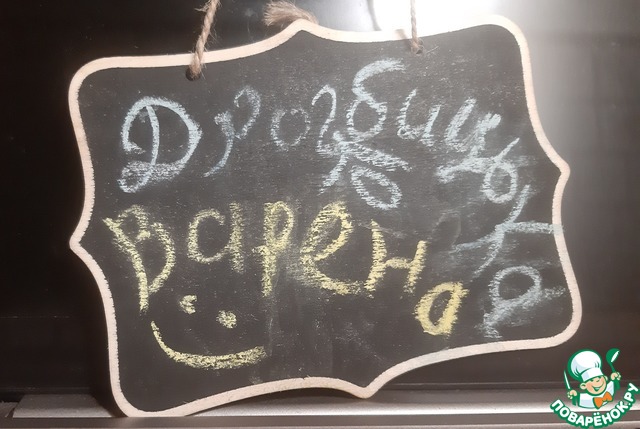 Дрогбицька
варена
ПОВАРЁНОК.РУ